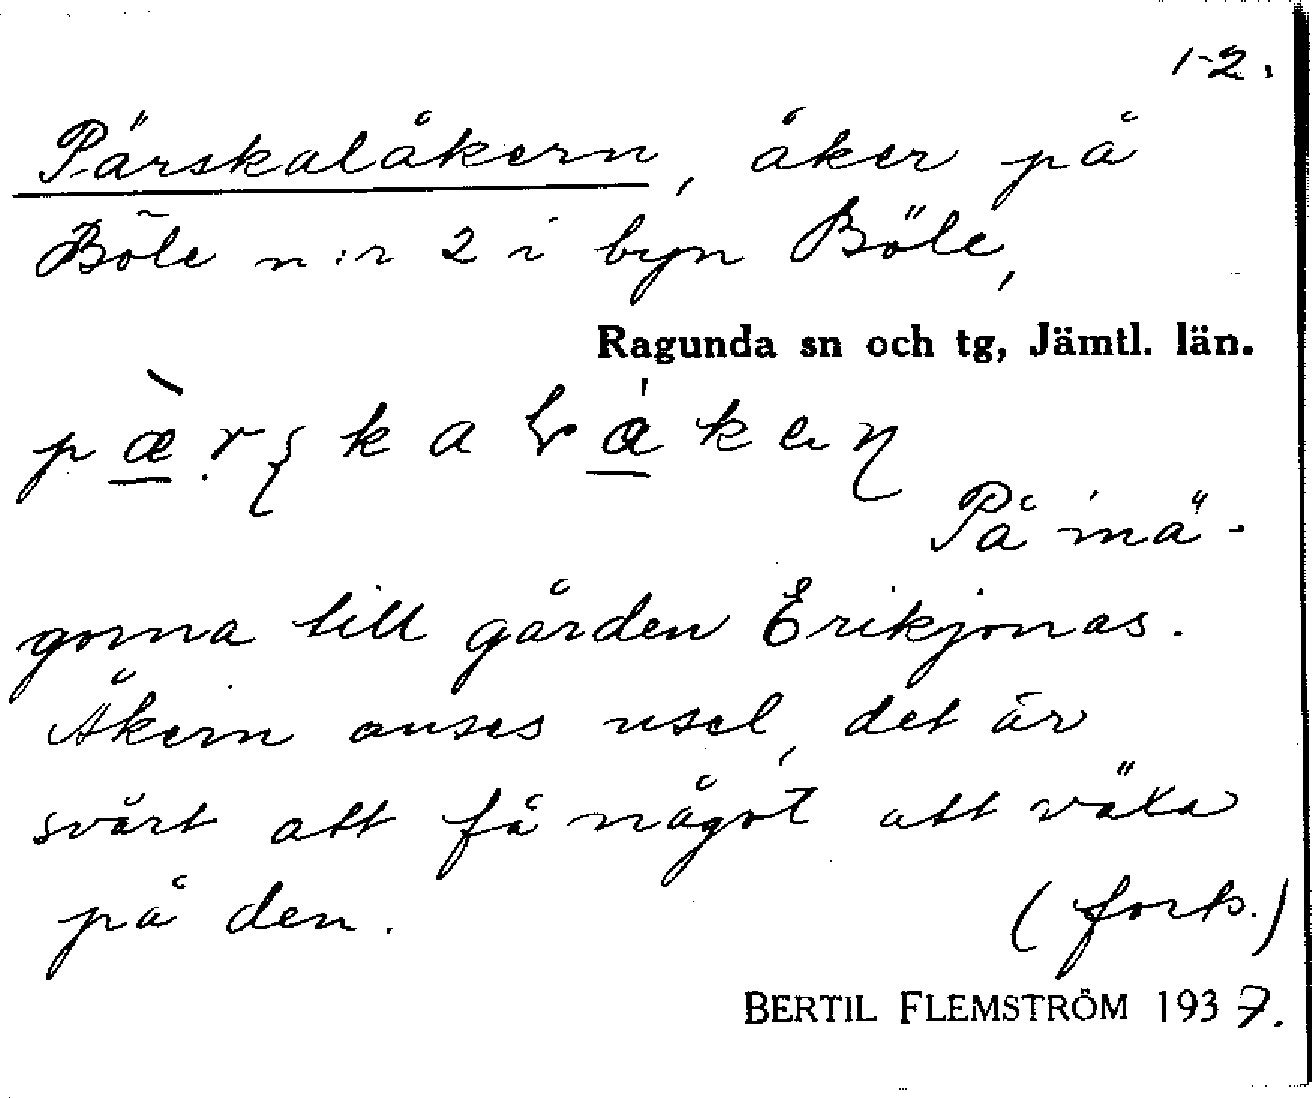 1-2.
Pärskalåkern, åker på
Böle n:r 2 i byn Böle,
Ragunda sn och tg, Jämtl. län.
På 'mä-
gorna till gården Erikjonas.
Åkern anses usel, det är
svårt att få något att växa
på den. (forts.)
BERTIL FLEMSTRÖM 1937.